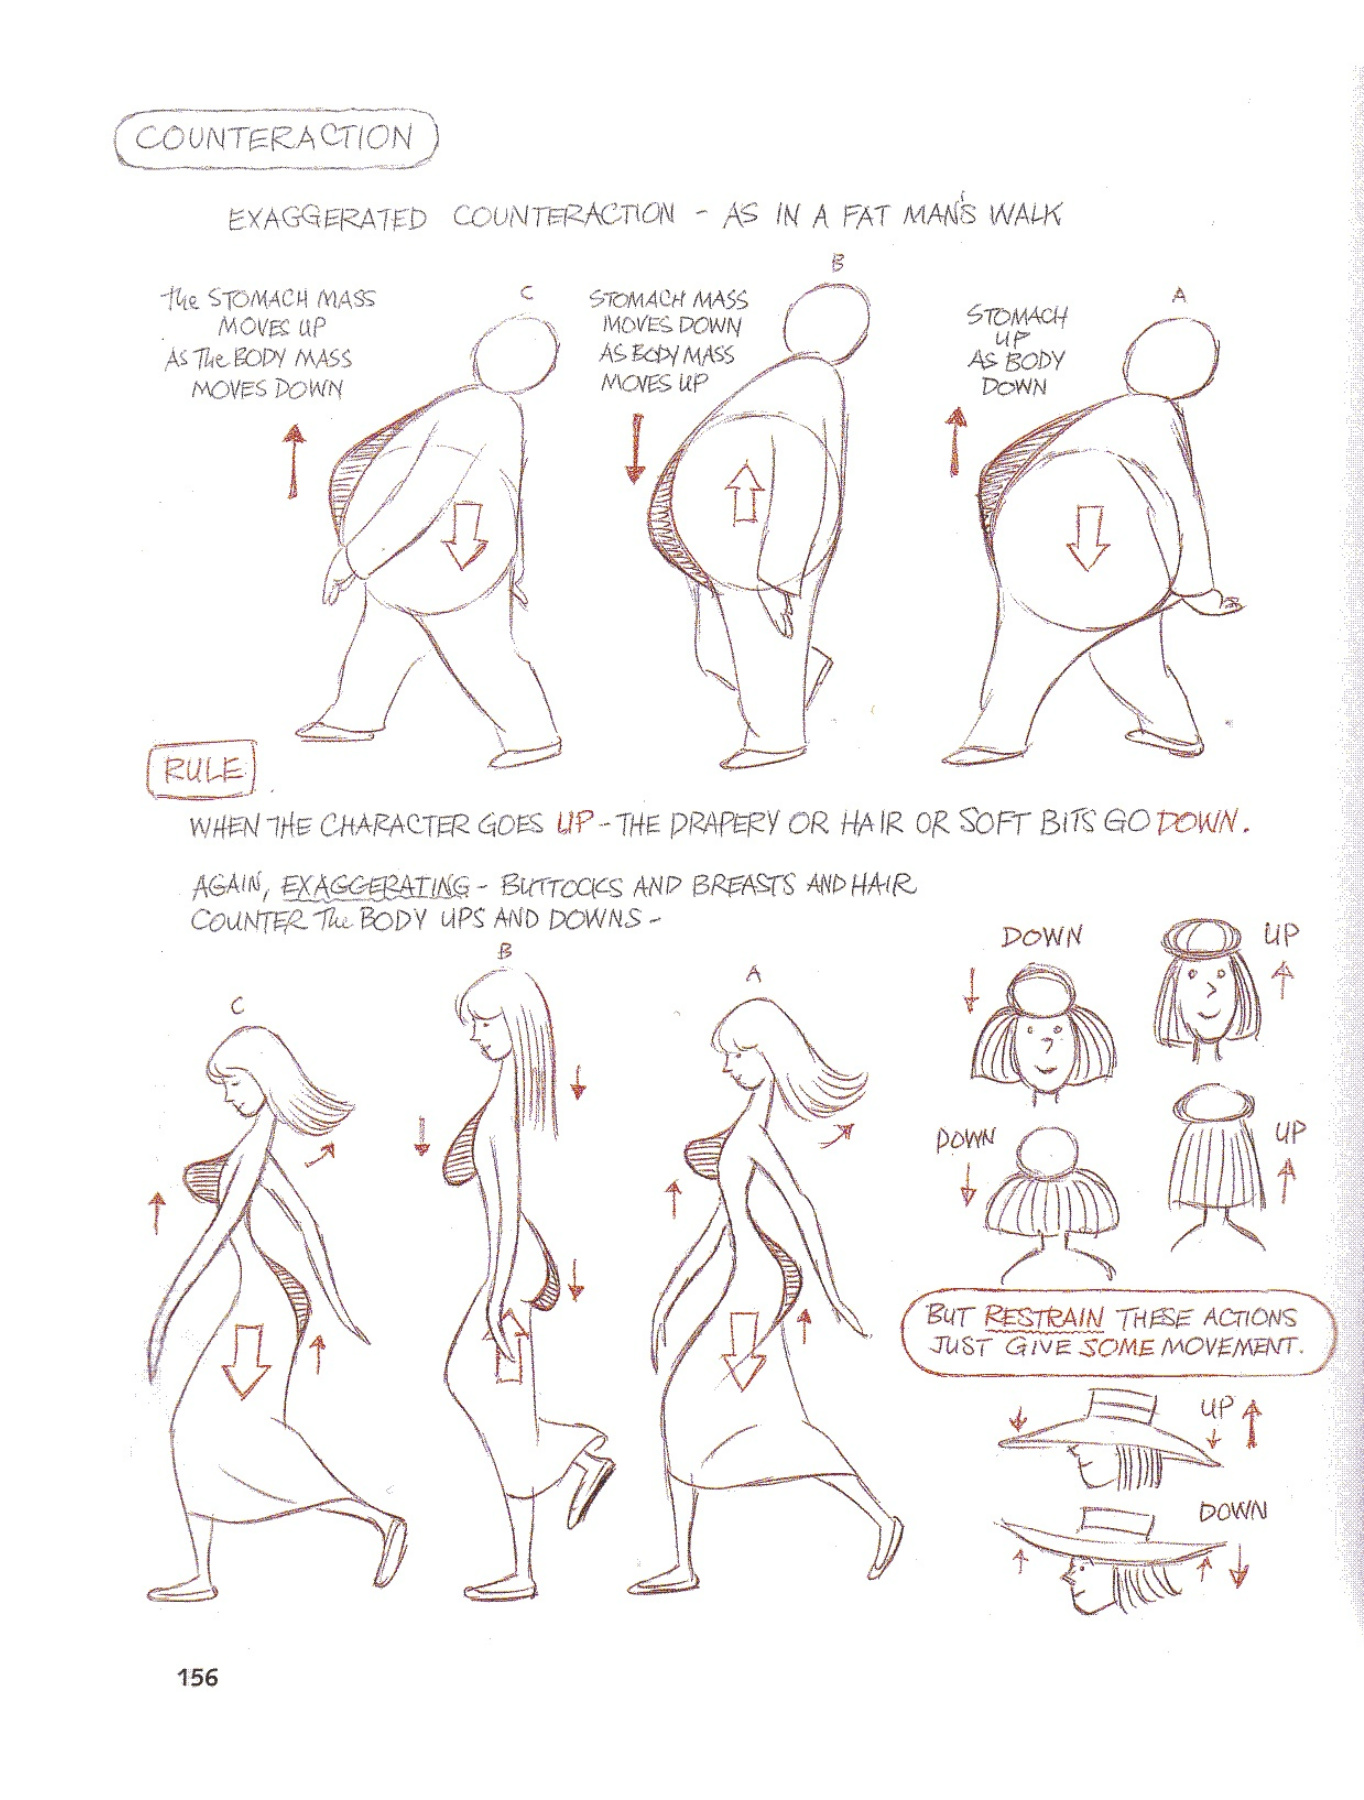 COUNTERACTION
EXAGGERATED COUNTERACTION - AS IN A FAT MAN'S WALK
C
The STOMACH MASS
MOVES UP
AS The BODY MASS
MOVES DOWN
B
STOMACH MASS
MOVES DOWN
AS BODY MASS
MOVES UP
A
STOMACH
UP
AS BODY
DOWN
RULE
WHEN THE CHARACTER GOES UP - THE DRAPERY OR HAIR OR SOFT BITS GO DOWN.
AGAIN, EXAGGERATING - BUTTOCKS AND BREASTS AND HAIR
COUNTER The BODY UPS AND DOWNS -
C
B
A
DOWN
UP
DOWN
UP
BUT RESTRAIN THESE ACTIONS
JUST GIVE SOME MOVEMENT.
UP
DOWN
156